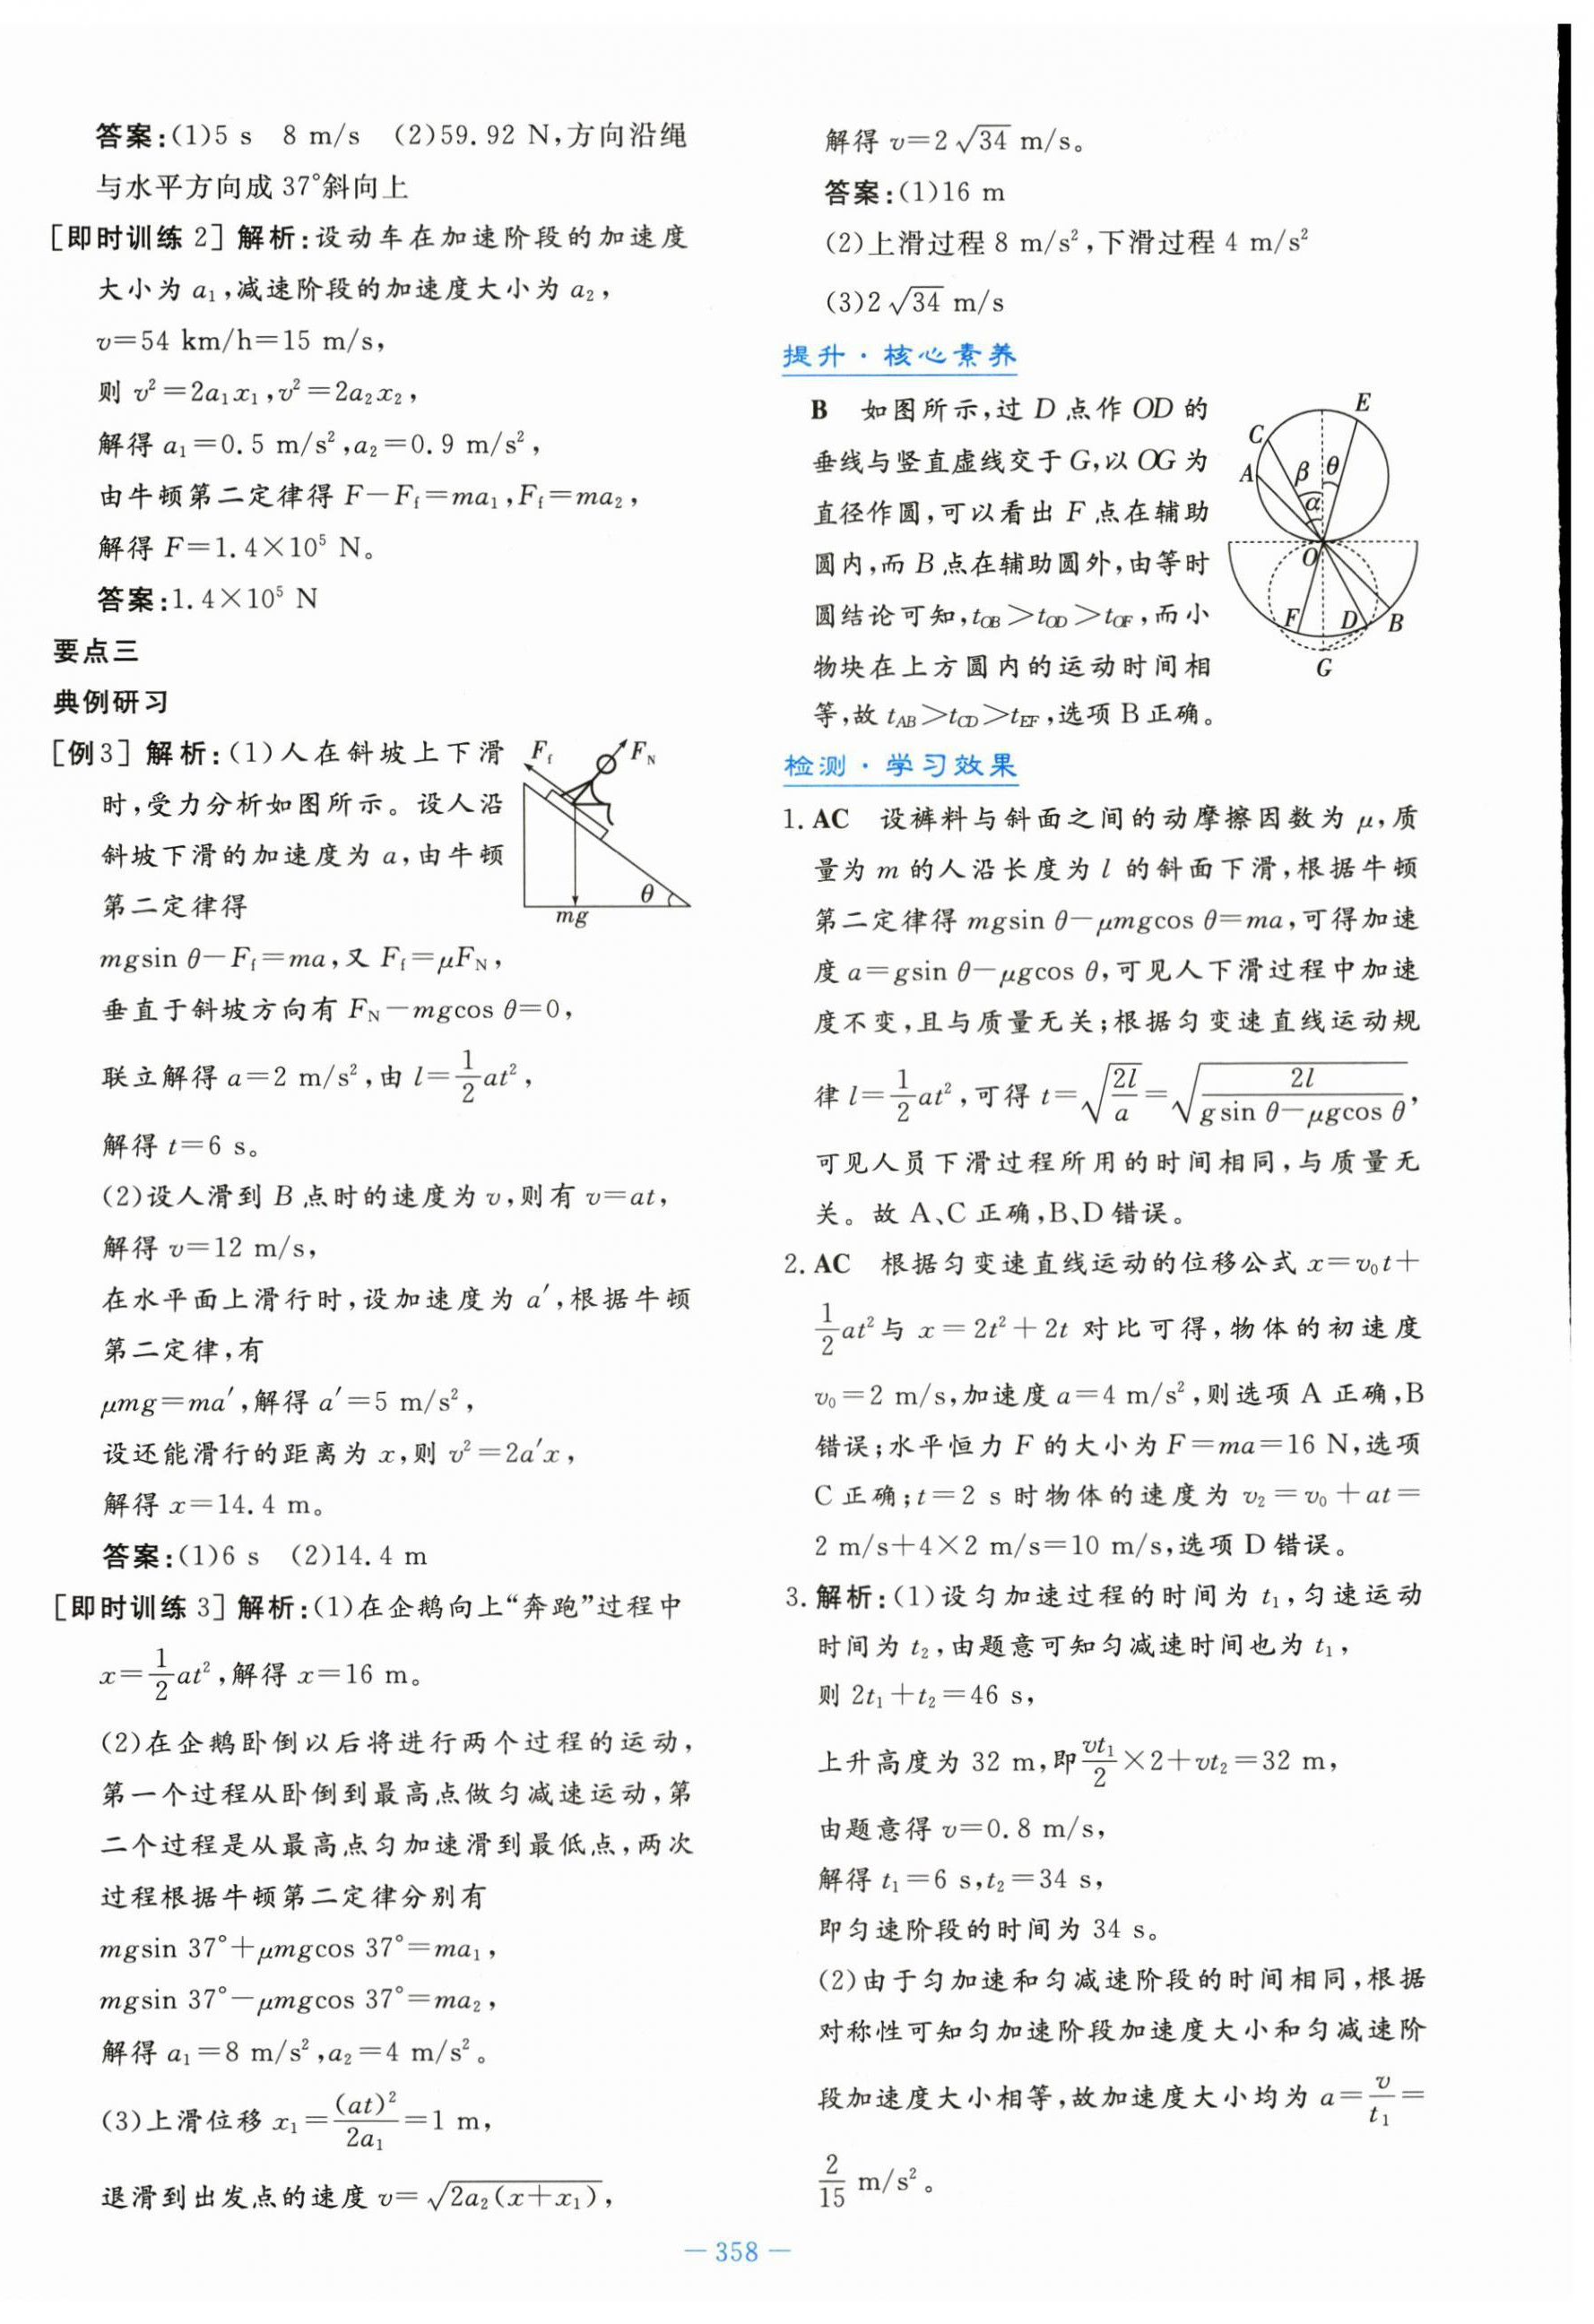 答案:(1)5 s　8 m/s　(2)59.92 N,方向沿绳
与水平方向成 37°斜向上
[即时训练 2] 解析:设动车在加速阶段的加速度
大小为 a₁,减速阶段的加速度大小为 a₂,
v=54 km/h=15 m/s,
则 v²=2a₁x₁,v²=2a₂x₂,
解得 a₁=0.5 m/s²,a₂=0.9 m/s²,
由牛顿第二定律得 F-F_f=ma₁,F_f=ma₂,
解得 F=1.4×10⁵ N。
答案:1.4×10⁵ N
要点三
典例研习
[例3] 解析:(1)人在斜坡上下滑
时,受力分析如图所示。设人沿
斜坡下滑的加速度为 a,由牛顿
第二定律得
F_f
F_N
θ
mg
mgsin θ-F_f=ma,又 F_f=μF_N,
垂直于斜坡方向有 F_N-mgcos θ=0,
联立解得 a=2 m/s²,由 l=1/2 at²,
解得 t=6 s。
(2)设人滑到 B 点时的速度为 v,则有 v=at,
解得 v=12 m/s,
在水平面上滑行时,设加速度为 a′,根据牛顿
第二定律,有
μmg=ma′,解得 a′=5 m/s²,
设还能滑行的距离为 x,则 v²=2a′x,
解得 x=14.4 m。
答案:(1)6 s　(2)14.4 m
[即时训练 3] 解析:(1)在企鹅向上“奔跑”过程中
x=1/2 at²,解得 x=16 m。
(2)在企鹅卧倒以后将进行两个过程的运动,
第一个过程从卧倒到最高点做匀减速运动,第
二个过程是从最高点匀加速滑到最低点,两次
过程根据牛顿第二定律分别有
mgsin 37°+μmgcos 37°=ma₁,
mgsin 37°-μmgcos 37°=ma₂,
解得 a₁=8 m/s²,a₂=4 m/s²。
(3)上滑位移 x₁=(at)²/2a₁=1 m,
退滑到出发点的速度 v=√(2a₂(x+x₁)),
解得 v=2√34 m/s。
答案:(1)16 m
(2)上滑过程 8 m/s²,下滑过程 4 m/s²
(3)2√34 m/s
提升·核心素养
B　如图所示,过 D 点作 OD 的
垂线与竖直虚线交于 G,以 OG 为
直径作圆,可以看出 F 点在辅助
圆内,而 B 点在辅助圆外,由等时
圆结论可知,t_OB>t_OD>t_OF,而小
物块在上方圆内的运动时间相
等,故 t_AB>t_CD>t_EF,选项 B 正确。
E
C
A
β
θ
α
O
F
D
B
G
检测·学习效果
1. AC　设裤料与斜面之间的动摩擦因数为 μ,质
量为 m 的人沿长度为 l 的斜面下滑,根据牛顿
第二定律得 mgsin θ-μmgcos θ=ma,可得加速
度 a=gsin θ-μgcos θ,可见人下滑过程中加速
度不变,且与质量无关;根据匀变速直线运动规
律 l=1/2 at²,可得 t=√(2l/a)=√(2l/(gsin θ-μgcos θ)),
可见人员下滑过程所用的时间相同,与质量无
关。故 A、C 正确,B、D 错误。
2. AC　根据匀变速直线运动的位移公式 x=v₀t+
1/2 at²与 x=2t²+2t 对比可得,物体的初速度
v₀=2 m/s,加速度 a=4 m/s²,则选项 A 正确,B
错误;水平恒力 F 的大小为 F=ma=16 N,选项
C 正确;t=2 s 时物体的速度为 v₂=v₀+at=
2 m/s+4×2 m/s=10 m/s,选项 D 错误。
3. 解析:(1)设匀加速过程的时间为 t₁,匀速运动
时间为 t₂,由题意可知匀减速时间也为 t₁,
则 2t₁+t₂=46 s,
上升高度为 32 m,即 vt₁/2×2+vt₂=32 m,
由题意得 v=0.8 m/s,
解得 t₁=6 s,t₂=34 s,
即匀速阶段的时间为 34 s。
(2)由于匀加速和匀减速阶段的时间相同,根据
对称性可知匀加速阶段加速度大小和匀减速阶
段加速度大小相等,故加速度大小均为 a=v/t₁=
2/15 m/s²。
— 358 —